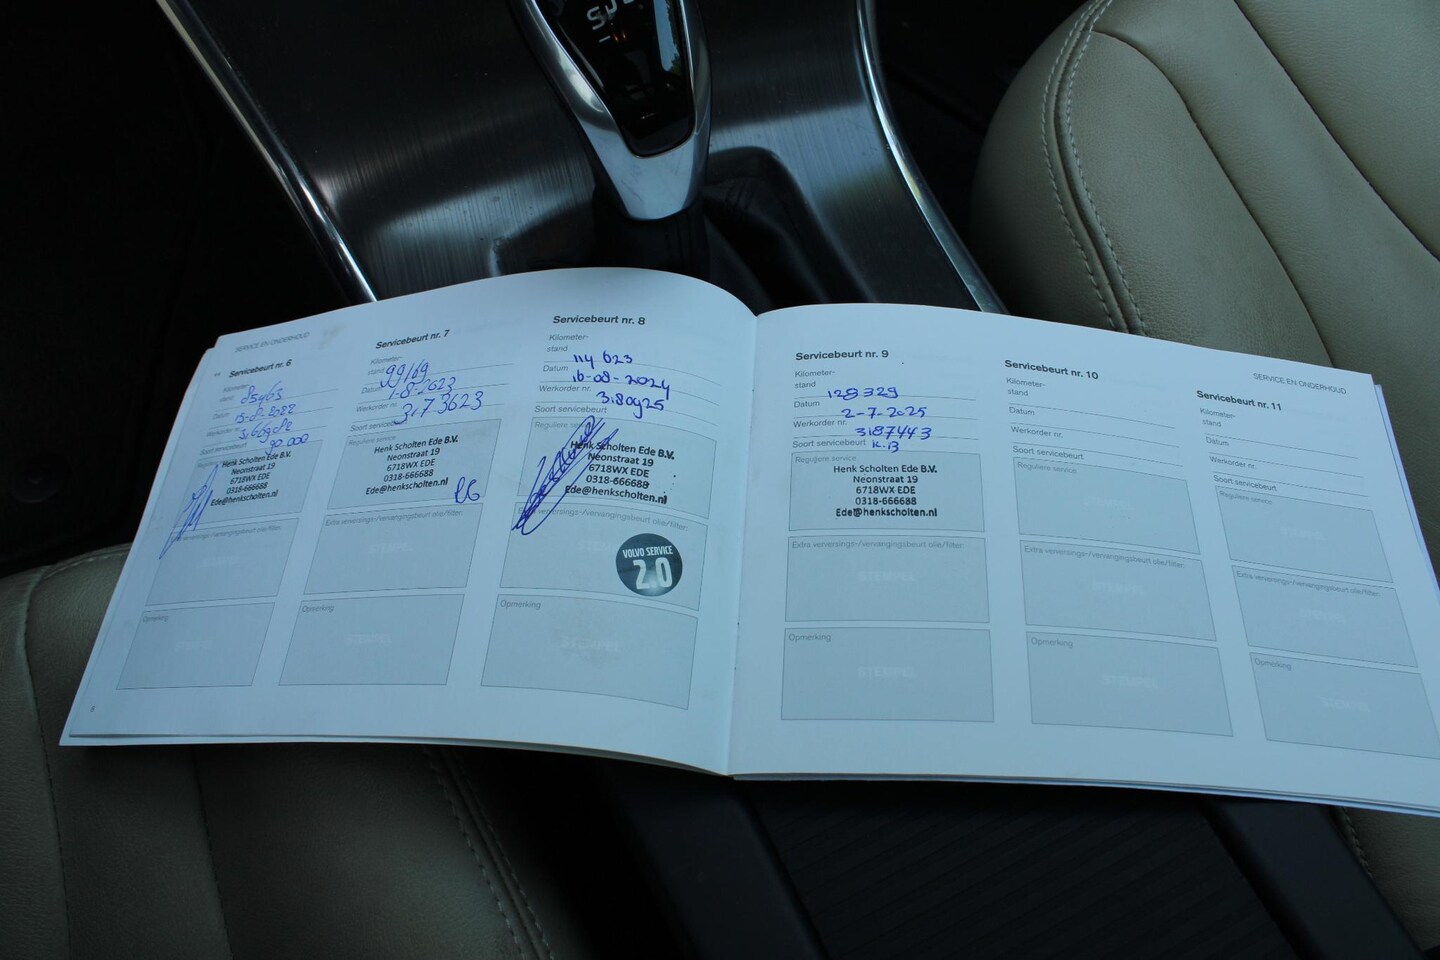 SERVICE EN ONDERHOUD
Servicebeurt nr. 6
Kilometer-
stand 85463
Datum 15-8-2022
Werkorder nr.
Soort servicebeurt 90.000
Reguliere service
Henk Scholten Ede B.V.
Neonstraat 19
6718WX EDE
0318-666688
Ede@henkscholten.nl
Extra verversings-/vervangingsbeurt olie/filter:
STEMPEL
Opmerking
STEMPEL
8
Servicebeurt nr. 7
Kilometer-
stand 99169
Datum 1-8-2023
Werkorder nr. 3173623
Soort servicebeurt
Reguliere service
Henk Scholten Ede B.V.
Neonstraat 19
6718WX EDE
0318-666688
Ede@henkscholten.nl
Extra verversings-/vervangingsbeurt olie/filter:
STEMPEL
Opmerking
STEMPEL
Servicebeurt nr. 8
Kilometer-
stand 114 623
Datum 16-08-2024
Werkorder nr. 3180925
Soort servicebeurt
Reguliere service
Henk Scholten Ede B.V.
Neonstraat 19
6718WX EDE
0318-666688
Ede@henkscholten.nl
Extra verversings-/vervangingsbeurt olie/filter:
STEMPEL
VOLVO SERVICE
2.0
Opmerking
STEMPEL
Servicebeurt nr. 9
Kilometer-
stand 128329
Datum 2-7-2025
Werkorder nr. 3187443
Soort servicebeurt K.B
Reguliere service
Henk Scholten Ede B.V.
Neonstraat 19
6718WX EDE
0318-666688
Ede@henkscholten.nl
Extra verversings-/vervangingsbeurt olie/filter:
STEMPEL
Opmerking
STEMPEL
Servicebeurt nr. 10
Kilometer-
stand
Datum
Werkorder nr.
Soort servicebeurt
Reguliere service
STEMPEL
Extra verversings-/vervangingsbeurt olie/filter:
STEMPEL
Opmerking
STEMPEL
SERVICE EN ONDERHOUD
Servicebeurt nr. 11
Kilometer-
stand
Datum
Werkorder nr.
Soort servicebeurt
Reguliere service
STEMPEL
Extra verversings-/vervangingsbeurt olie/filter:
STEMPEL
Opmerking
STEMPEL